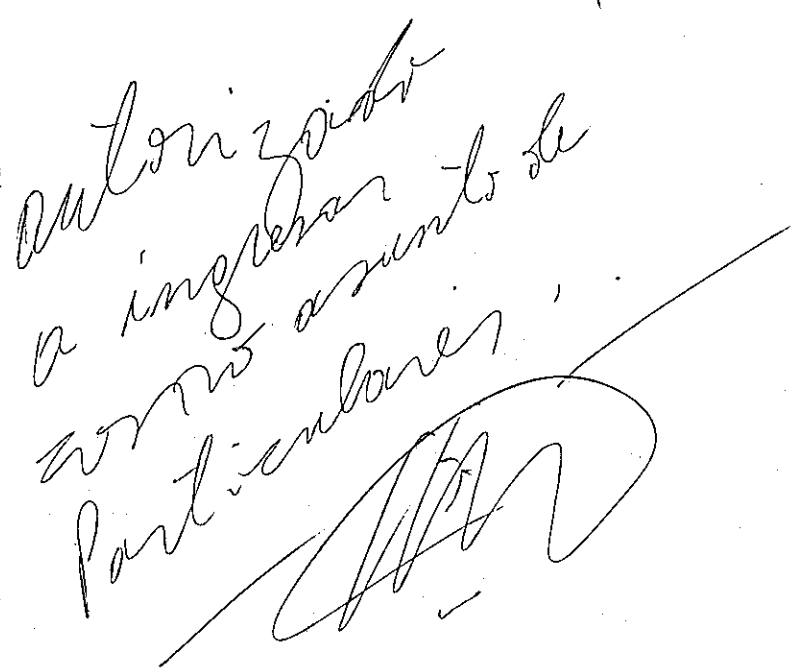 autorizado
a ingresar
como asunto de
Particulares.